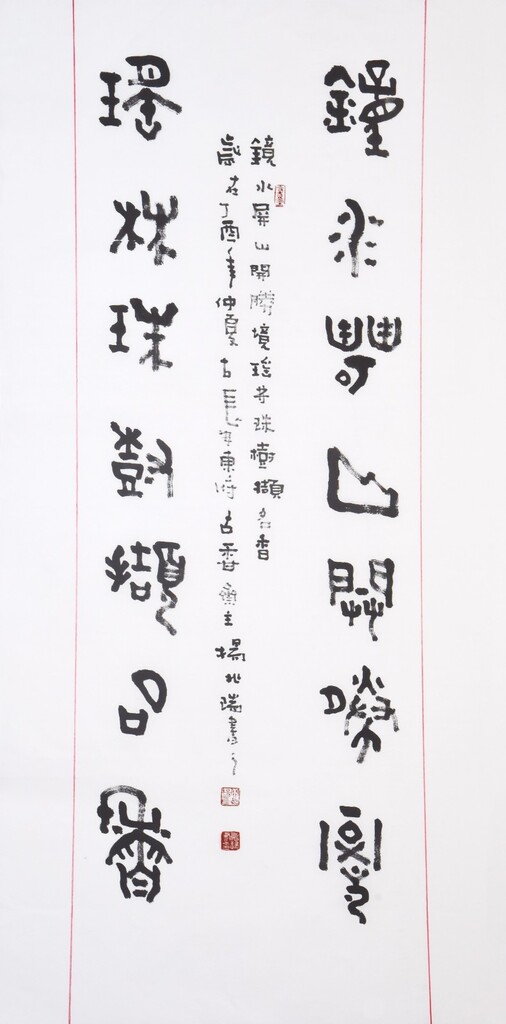 鏡水屏山開勝境
鏡水屏山開勝境瑤珠樹擷名香
歲在丁酉年仲夏古長安東府古香齋主楊兆瑞書之
瑤林珠樹擷名香